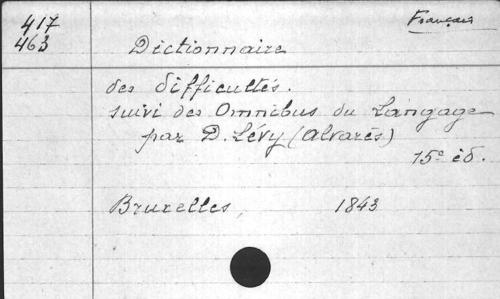 417
463
Français
Dictionnaire
des difficultés.
suivi des Omnibus du Langage
par D. Lévy (Alvarès)
15e éd.
Bruxelles, 1843